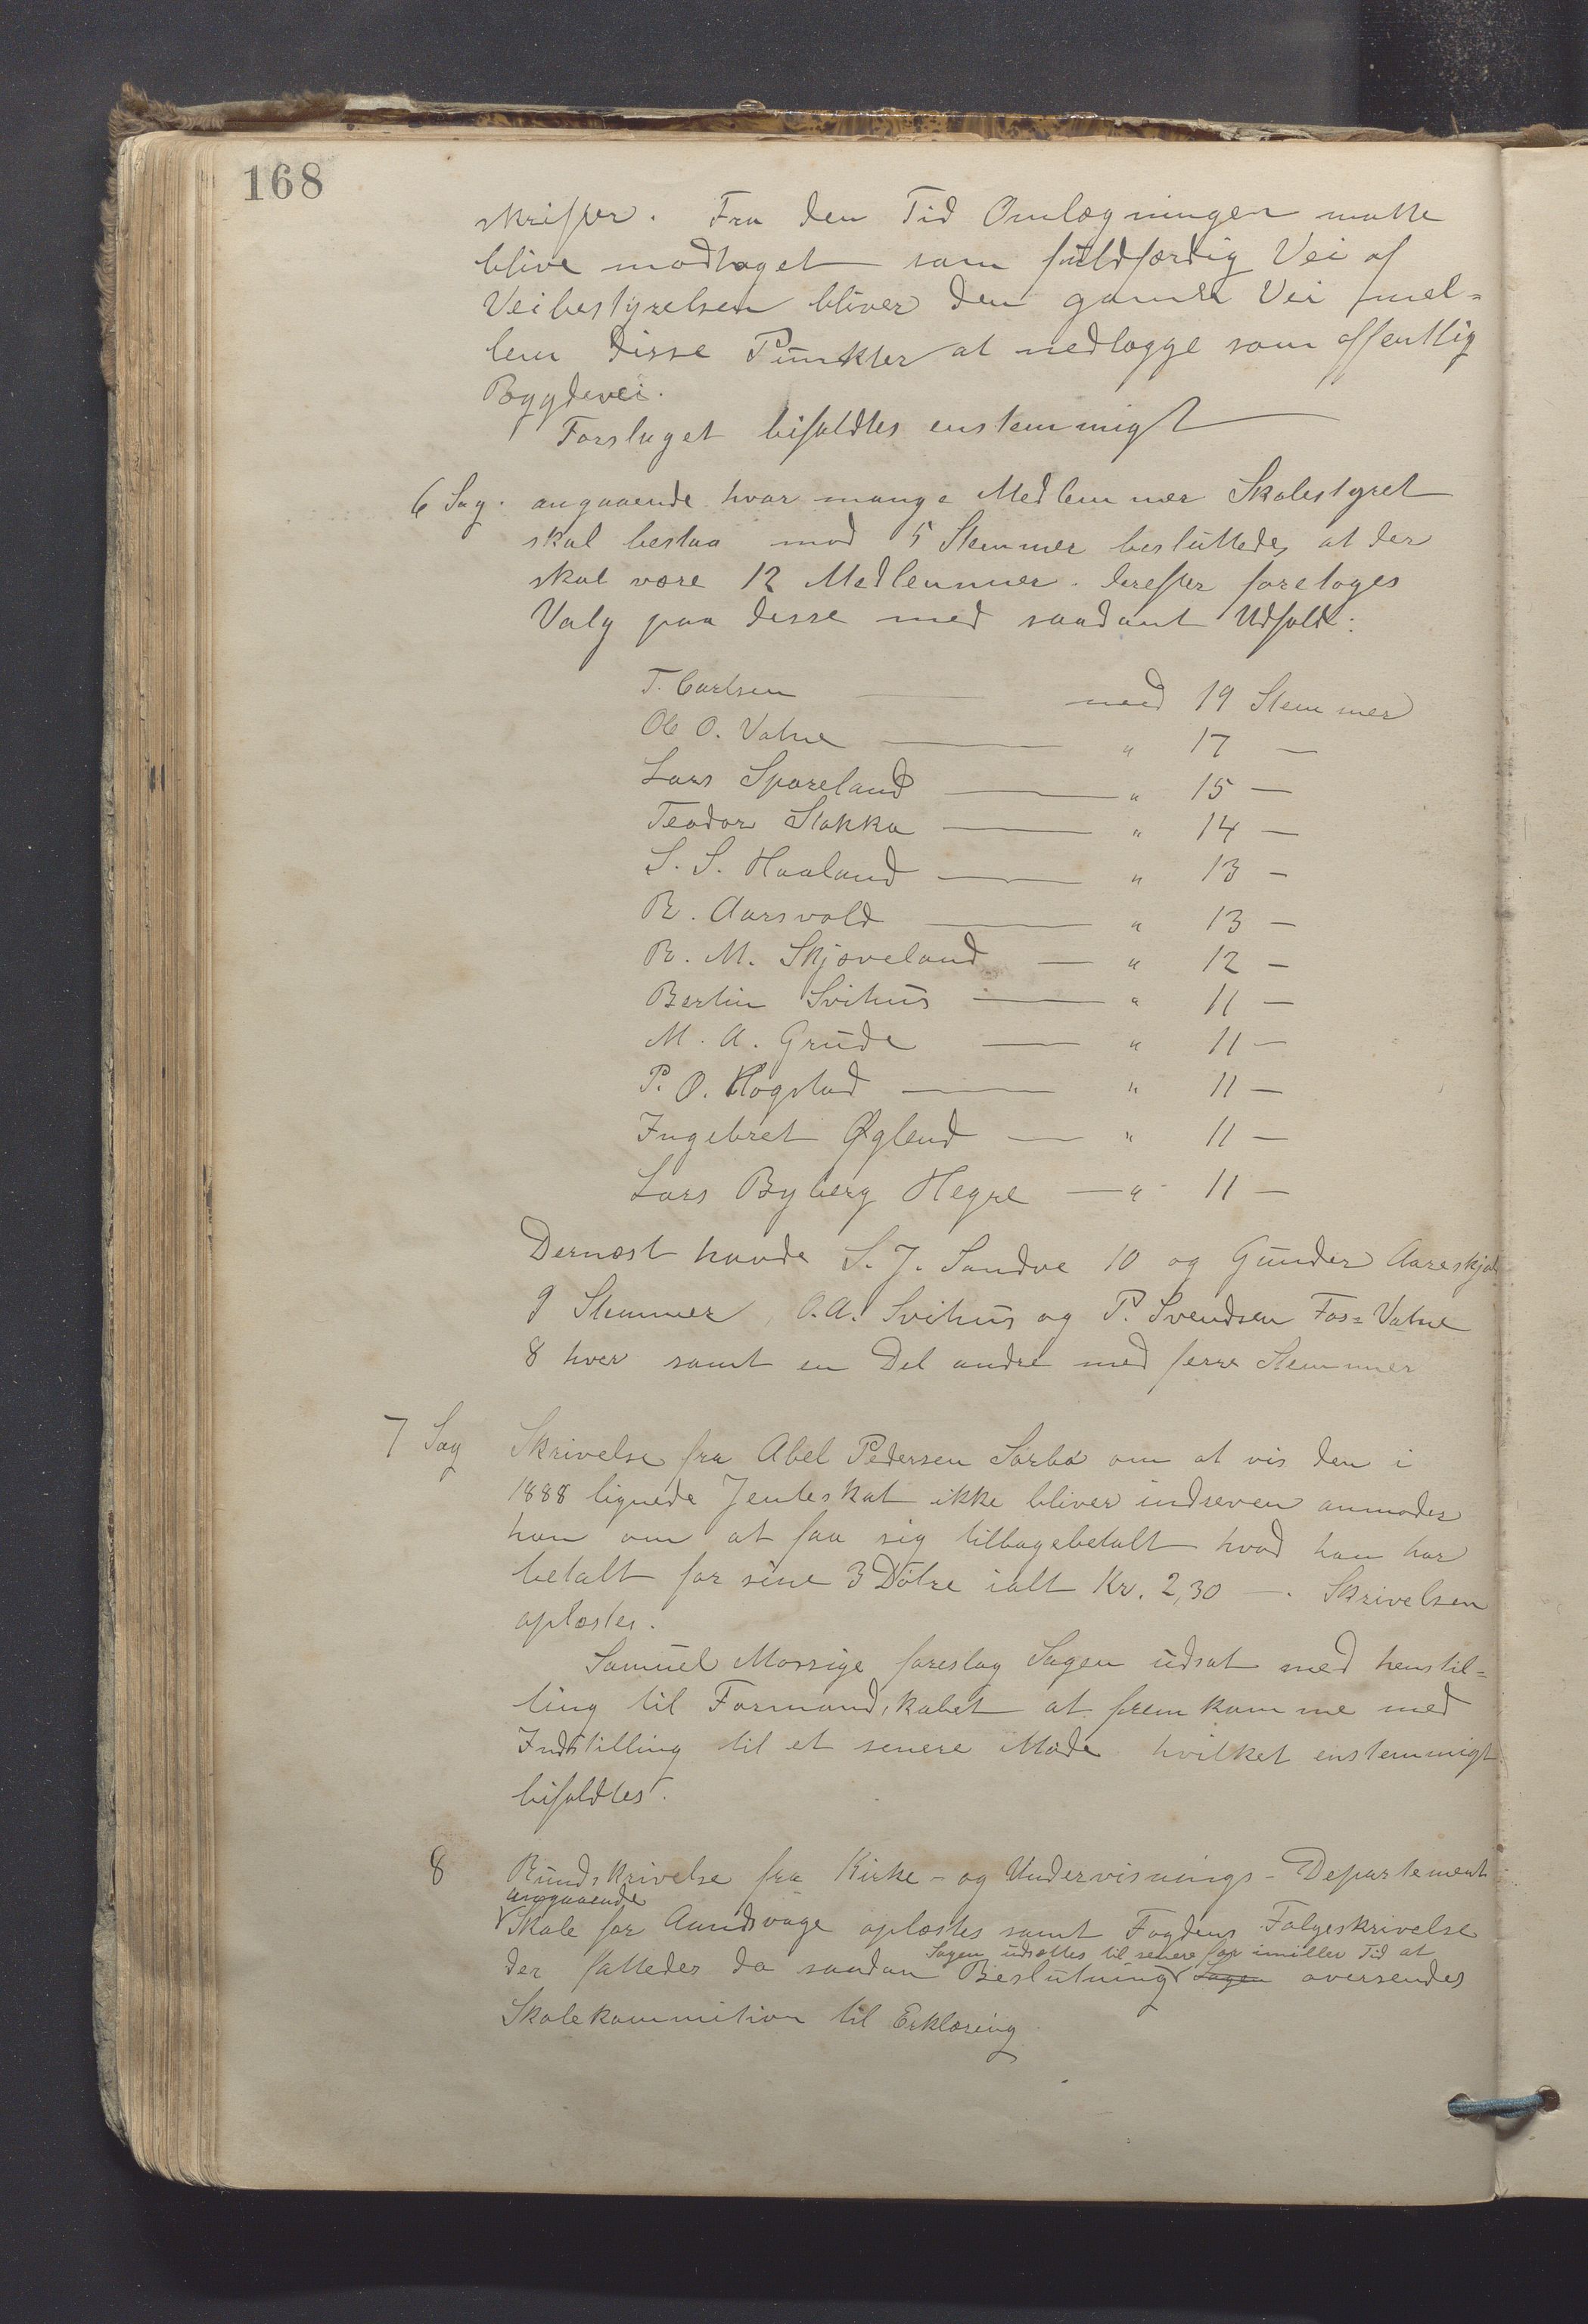 168
skrifter. Fra den Tid Omlægningen matte
blive modtaget som fuldfærdig Vei af
Veibestyrelsen bliver den gamle Vei mel=
lem disse Punkter at nedlægge som offentlig
Bygdevei.
Forslaget bifaldtes enstemmigt
6 Sag. angaaende hvor mange Medlemmer Skolestyret
skal bestaa mod 5 Stemmer besluttedes at der
skal være 12 Medlemmer. derefter foretoges
Valg paa disse med saadant Udfald:
T. Carlsen — med 19 Stemmer
Ole O. Vatne — " 17 —
Lars Spareland — " 15 —
Teodor Stokka — " 14 —
S. S. Haaland — " 13 —
R. Aarsvold — " 13 —
R. M. Skjæveland — " 12 —
Bertin Svihus — " 11 —
M. A. Grude — " 11 —
P. O. Hogstad — " 11 —
Ingebret Øglend — " 11 —
Lars Byberg Hegre — " 11 —
Dernæst havde S. J. Sandve 10 og Gunder Aareskjold
9 Stemmer, O.A. Svihus og P. Svendsen Fos=Vatne
8 hver samt en Del andre med færre Stemmer
7 Sag Skrivelse fra Abel Pedersen Sørbø om at vis den i
1888 lignede Jenteskat ikke bliver indreven anmodes
han om at faa sig tilbagebetalt hvad han har
betalt for sine 3 Døtre ialt Kr. 2,30 —. Skrivelsen
oplæstes.
Samuel Mossige foreslog Sagen udsat med henstil=
ling til Formandskabet at fremkomme med
Indstilling til et senere Møde hvilket enstemmigt
bifaldtes.
8 Rundskrivelse fra Kirke- og Undervisnings-Departement
angaaende
Skole for Aandsvage oplæstes samt Fogdens Følgeskrivelse
Sagen udsættes til senere for imidler Tid at
der fattedes da saadan Beslutning Sagen oversendes
Skolekommition til Erklæring